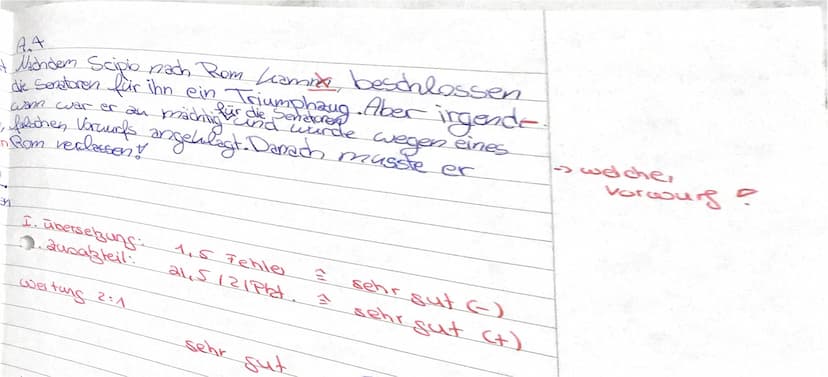 A.4
Nachdem Scipio nach Rom kam, beschlossen
die Senatoren für ihn ein Triumphzug. Aber irgend-
wann war er zu mächtig für die Senatoren und wurde wegen eines
falschen Vorwurfs angeklagt. Danach musste er
Rom verlassen!
-> welcher
Vorwurf?
I. Übersetzung: 1,5 Fehler ≙ sehr gut (-)
. Zusatzteil: 21,5 / 21 Pkt. ≙ sehr gut (+)
Wertung 2:1
sehr gut